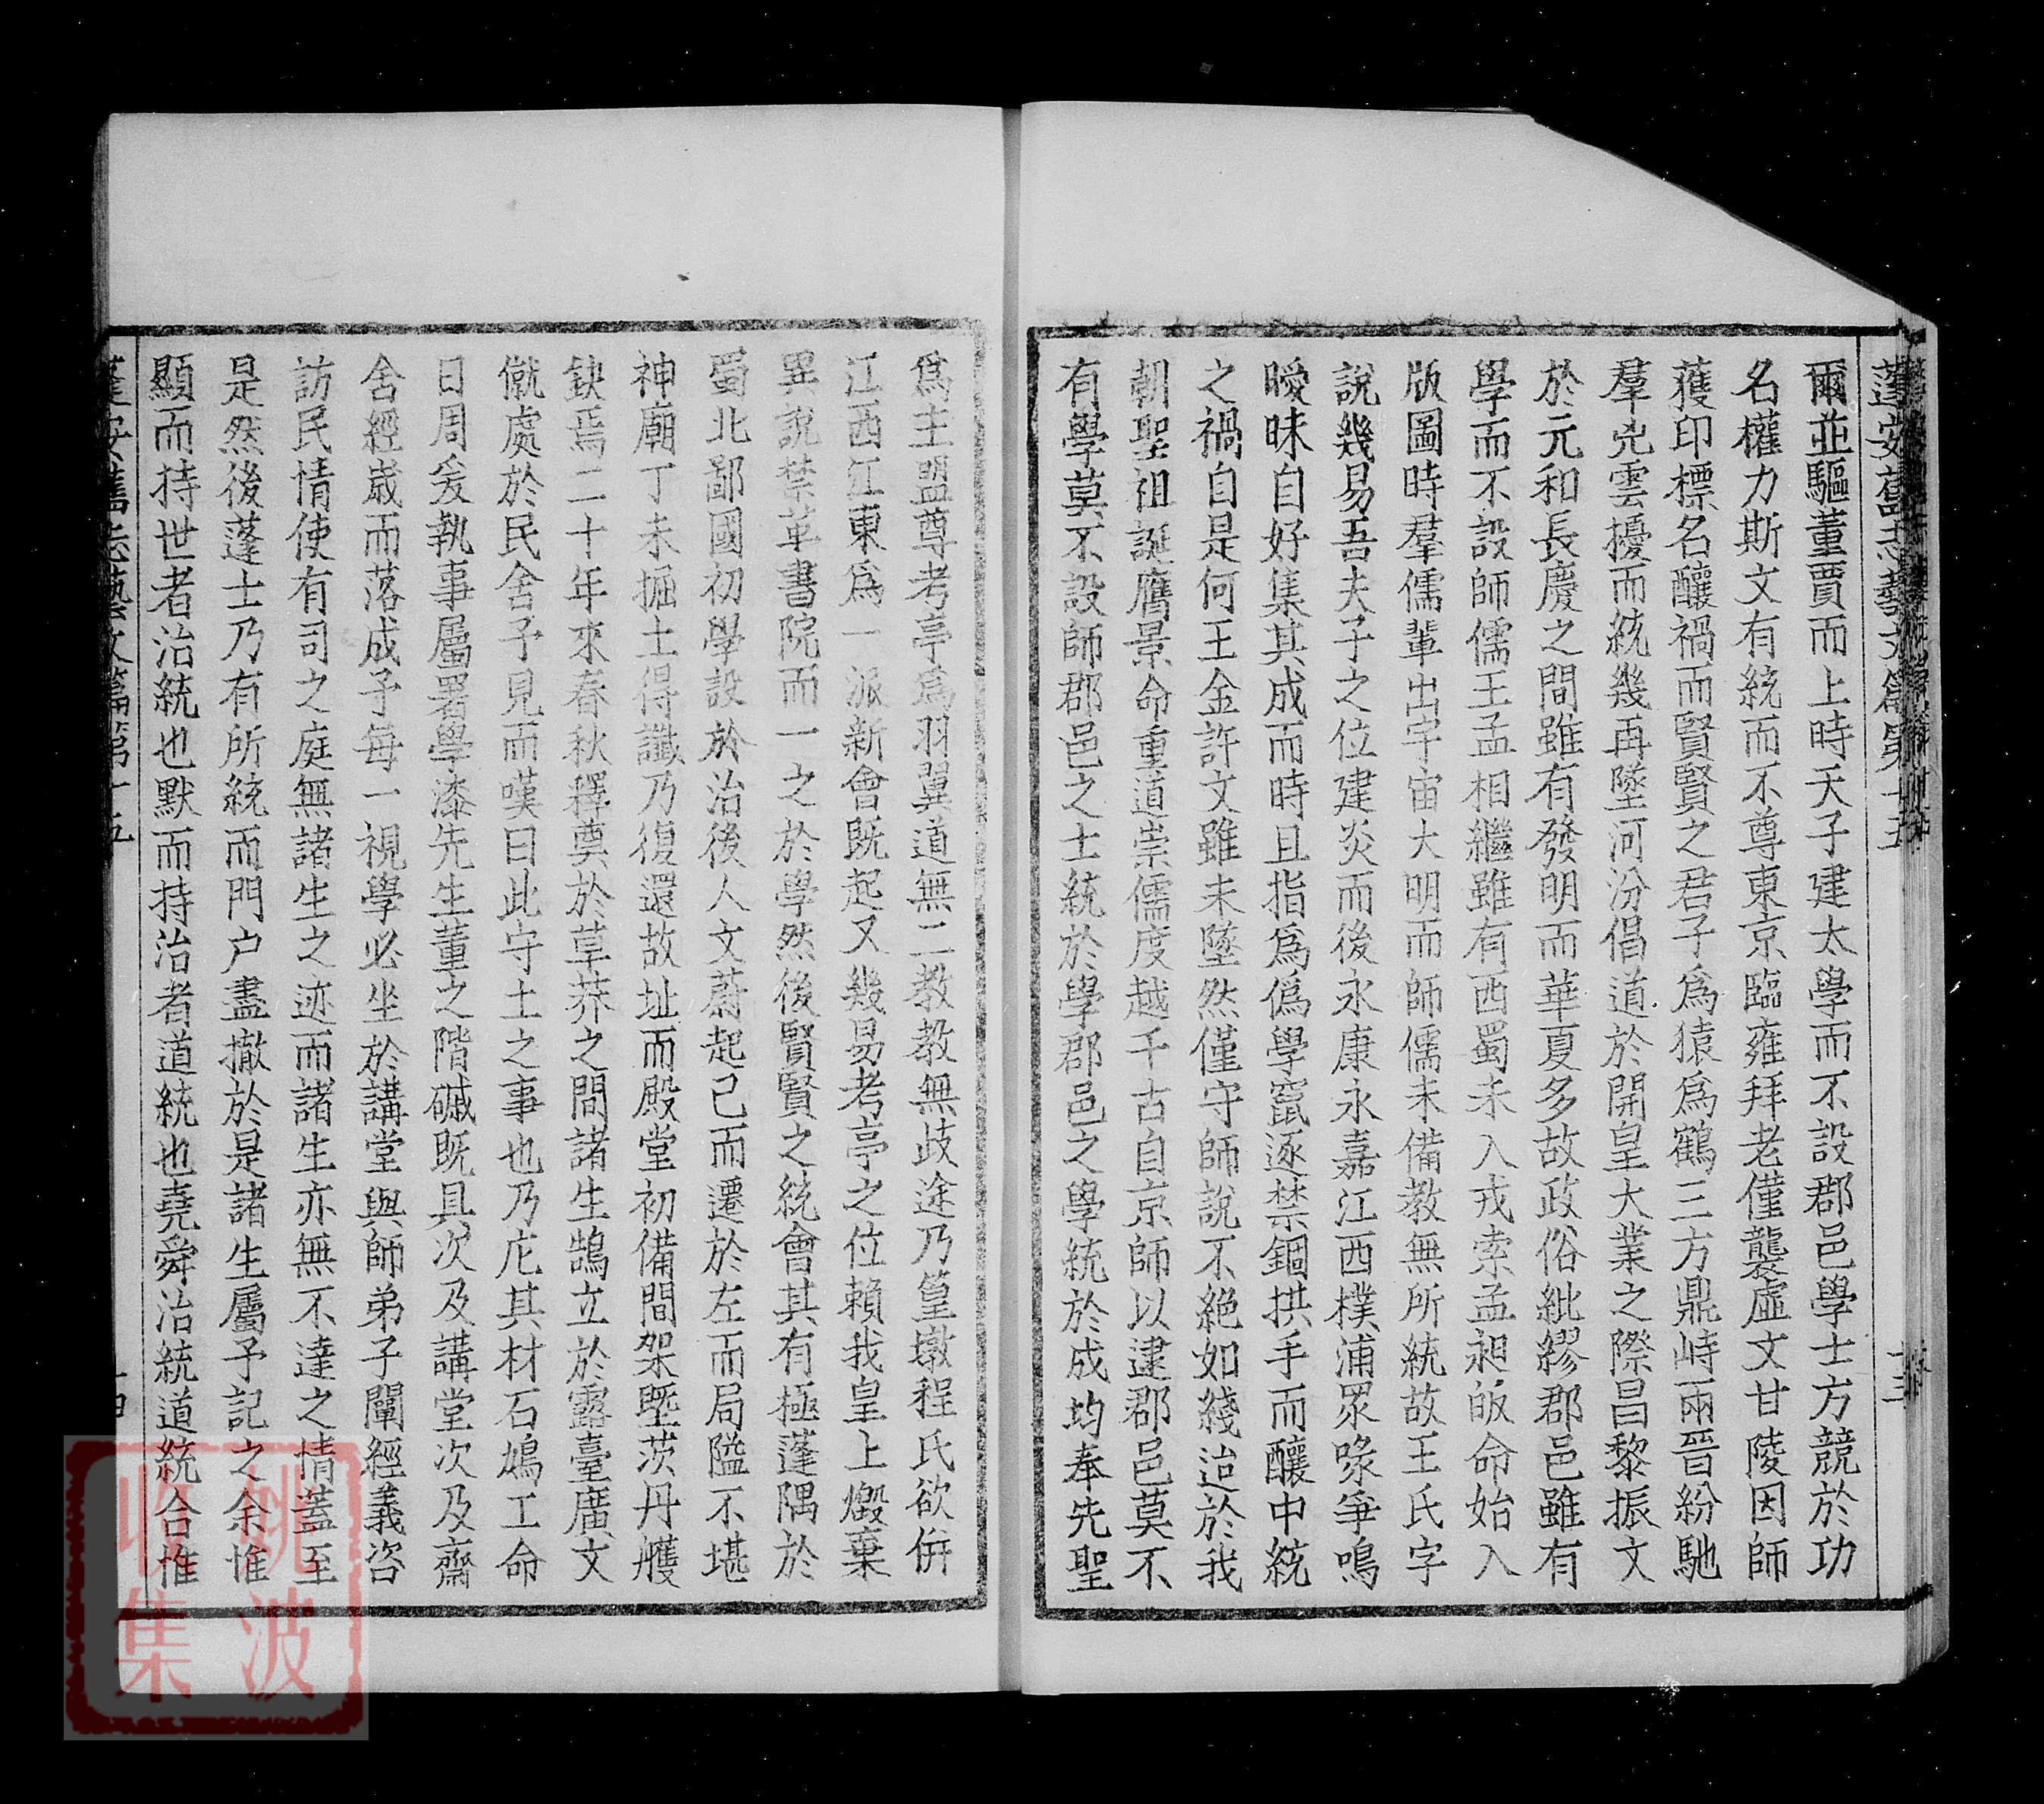 蓬安舊志藝文篇第十五
十三
爾並驅董賈而上時天子建太學而不設郡邑學士方競於功
名權力斯文有統而不尊東京臨雍拜老僅襲虛文甘陵因師
獲印標名釀禍而賢賢之君子為猿為鶴三方鼎峙兩晉紛馳
羣兇雲擾而統幾再墜河汾倡道於開皇大業之際昌黎振文
於元和長慶之間雖有發明而華夏多故政俗紕繆郡邑雖有
學而不設師儒王孟相繼雖有西蜀未入戎索孟昶皈命始入
版圖時羣儒輩出宇宙大明而師儒未備教無所統故王氏字
說幾易吾夫子之位建炎而後永康永嘉江西樸浦眾喙爭鳴
曖昧自好集其成而時且指為偽學竄逐禁錮拱手而釀中統
之禍自是何王金許文雖未墜然僅守師說不絕如綫迨於我
朝聖祖誕膺景命重道崇儒度越千古自京師以逮郡邑莫不
有學莫不設師郡邑之士統於學郡邑之學統於成均奉先聖
為主盟尊考亭為羽翼道無二教教無歧途乃篁墩程氏欲併
江西江東為一派新會既起又幾易考亭之位賴我皇上燬棄
異說禁革書院而一之於學然後賢賢之統會其有極蓬隅於
蜀北鄙國初學設於治後人文蔚起已而遷於左而局隘不堪
神廟丁未掘土得讖乃復還故址而殿堂初備間架暨茨丹艧
缺焉二十年來春秋釋奠於草莽之間諸生鵠立於露臺廣文
僦處於民舍予見而嘆曰此守土之事也乃庀其材石鳩工命
日周爰執事屬署學漆先生董之階磩既具次及講堂次及齋
舍經歲而落成予每一視學必坐於講堂與師弟子闡經義咨
訪民情使有司之庭無諸生之迹而諸生亦無不達之情蓋至
是然後蓬士乃有所統而門户盡撤於是諸生屬予記之余惟
顯而持世者治統也默而持治者道統也堯舜治統道統合惟
蓬安舊志藝文篇第十五
十四
姚波
收集